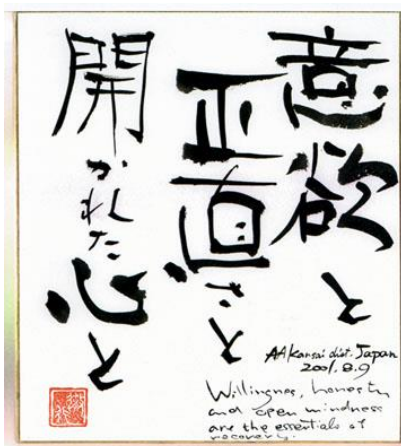 意欲と
正直さと
開かれた心と
AA Kansai dist. Japan
2001.8.9
Willingness, honesty
and open mindness
are the essentials of
recovery.